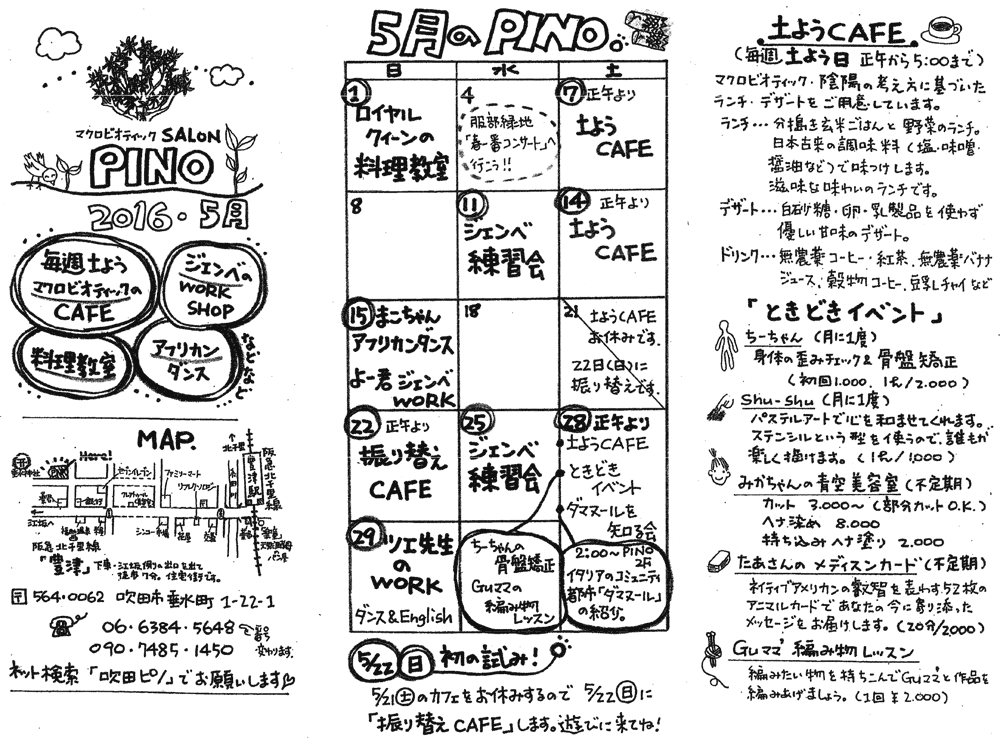 マクロビオティック SALON
PINO
2016・5月
毎週土よう
マクロビオティックの
CAFE
ジェンベの
WORK
SHOP
料理教室
アフリカン
ダンス
などなど
MAP.
Here!
PINO
セブンイレブン
ファミリーマート
北千里
豊津駅
阪急北千里線
江坂へ
阪急北千里線
「豊津」下車・江坂側の出口を出て
徒歩7分。住宅街です。
〒564・0062 吹田市垂水町1-22-1
06・6384・5648
090・7485・1450
ネット検索「吹田ピノ」でお願いします
5月のPINO。
日 水 土
1
ロイヤル
クィーンの
料理教室
4
服部緑地
「春一番コンサート」へ
行こう!!
7 正午より
土よう
CAFE
8
11
ジェンベ
練習会
14 正午より
土よう
CAFE
15 まこちゃん
アフリカンダンス
よー君 ジェンベ
WORK
18
21
土ようCAFE
お休みです。
22日(日)に
振り替えです。
22 正午より
振り替え
CAFE
25
ジェンベ
練習会
28 正午より
土ようCAFE
ときどき
イベント
ダマヌールを
知る会
29 ツエ先生
の
WORK
ダンス&English
ちーちゃんの
骨盤矯正
Guママの
編み物
レッスン
2:00〜PINO
2F
イタリアのコミュニティ
都市「ダマヌール」
の紹介。
5/22 日 初の試み!
5/21土のカフェをお休みするので 5/22日に
「振り替えCAFE」します。遊びに来てね!
土ようCAFE.
(毎週 土よう日 正午から5:00まで)
マクロビオティック・陰陽の考え方に基づいた
ランチ・デザートをご用意しています。
ランチ… 分搗き玄米ごはんと野菜のランチ。
日本古来の調味料(塩・味噌・
醤油など)で味つけします。
滋味な味わいのランチです。
デザート… 白砂糖・卵・乳製品を使わず
優しい甘味のデザート。
ドリンク… 無農薬コーヒー・紅茶、無農薬バナナ
ジュース、穀物コーヒー、豆乳チャイなど
「ときどきイベント」
ちーちゃん (月に1度)
身体の歪みチェック&骨盤矯正
(初回1.000. 1h/2.000)
Shu-shu (月に1度)
パステルアートで心を和ませてくれます。
ステンシルという型を使うので、誰もが
楽しく描けます。(1h/1,000)
みかちゃんの青空美容室(不定期)
カット 3.000〜(部分カットO.K.)
ヘナ染め 8.000
持ち込みヘナ塗り 2.000
たあさんの メディスンカード(不定期)
ネイティブアメリカンの叡智を表わす52枚の
アニマルカードであなたの今に寄り添った
メッセージをお届けします。(20分/2000)
Guママ 編み物レッスン
編みたい物を持ちこんでGuママと作品を
編みあげましょう。(1回¥2.000)